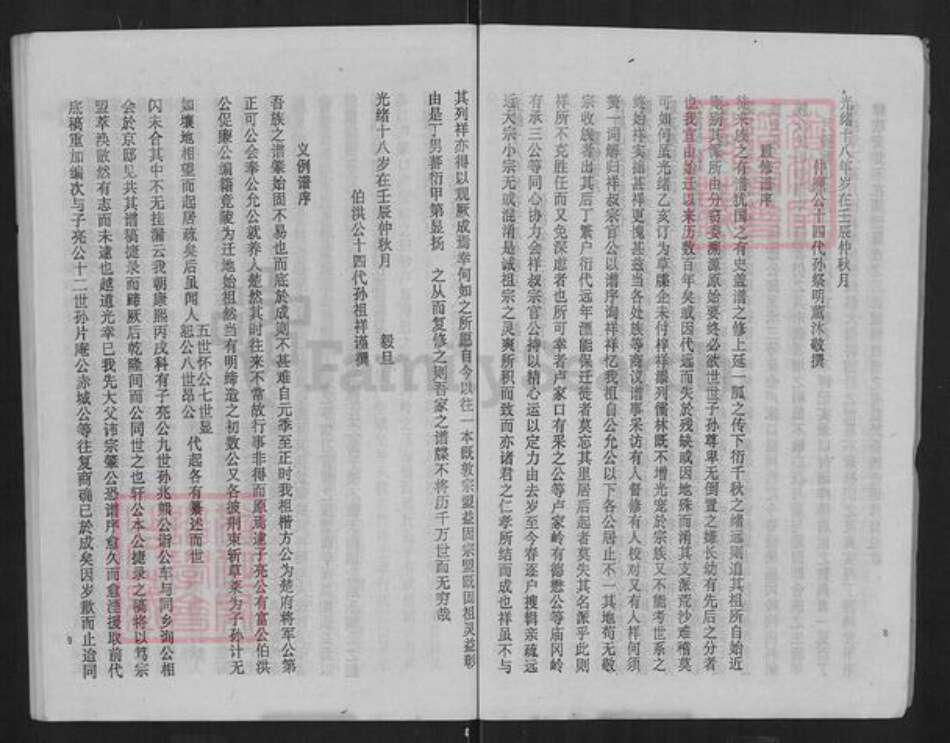 光绪十八年岁在壬辰仲秋月
仲廉公十四代孙祭明薰沐敬撰
重修谱序
从来族之有谱犹国之有史盖谱之修上延一胍之传下衍千秋之绪远则追其祖所自始近
则别其派所由分窃妄溯源原始要终必欲世世子孙尊卑无倒置之嫌长幼有先后之分者
也我宣由始迁以来历数百年矣或因代远而失於残缺或因地殊而淆其支派荒沙难稽莫
可如何虽光绪乙亥订为草牒企未付梓祥撮列儒林既不增光宠於宗族又不能考世系之
终始祥实拙甚祥更愧甚兹当各处族等商议谱事采访有人督修有人校对又有人祥何须
赘一词缘归祥叔宗官公以谱序询祥祥忆我祖自公允公以下各公居止不一其地苟无敬
宗收线者出其后丁繁户衍代远年湮能保迁徙者莫忘其里居后起者莫失其名派乎此则
祥所不克胜任而又免深虑者也所可幸者卢家口有采之公等卢家岭有德懋公等庙冈岭
有承三公等同心协力会祥叔宗官公持以精心运以定力由去岁至今春逐户搜辑亲疏远
迩大宗小宗无或混淆是诚祖宗之灵爽所积而致而亦诸君之仁孝所结而成也祥虽不与
8
其列祥亦得以观厥成焉幸何如之所愿自今以往一本既敦宗盟益固宗盟既固祖灵益彰
由是丁男蕃衍甲第显扬 之从而复修之则吾家之谱牒不将历千万世而无穷哉
光绪十八岁在壬辰仲秋月 毅旦
伯洪公十四代孙祖祥谨撰
义例谱序
吾族之谱肇始固不易也而底於成则不甚难自元季至正时我祖楷方公为楚府将军公第
正可公会奉公允公就养人楚然其时往来不常故行事非得而原焉逮子亮公有富公伯洪
公促廉公编籍竟陵为迁地始祖然当有明缔造之初数公又各披荆束斩草莱为子孙计无
五世怀公七世显
如壤地相望而起居疏矣后虽闻人恕公八世昂公 代起各有纂述而世
闪未合其中不无挂漏云我朝康熙丙戌科有子亮公九世孙兆熊公谐公车与同乡洵公相
会於京邸见共其谱稿捷录而踌厥后乾隆间而公同世之也轩公本公捷录之稿将以笃宗
盟萃涣散然有志而未逮也越道光幸巳我先大父讳宗肇公恐谱序愈久而愈湮援取前代
底稿重加编次与子亮公十二世孙片庵公赤城公等往复商确已於成矣因岁歉而止迨同
9